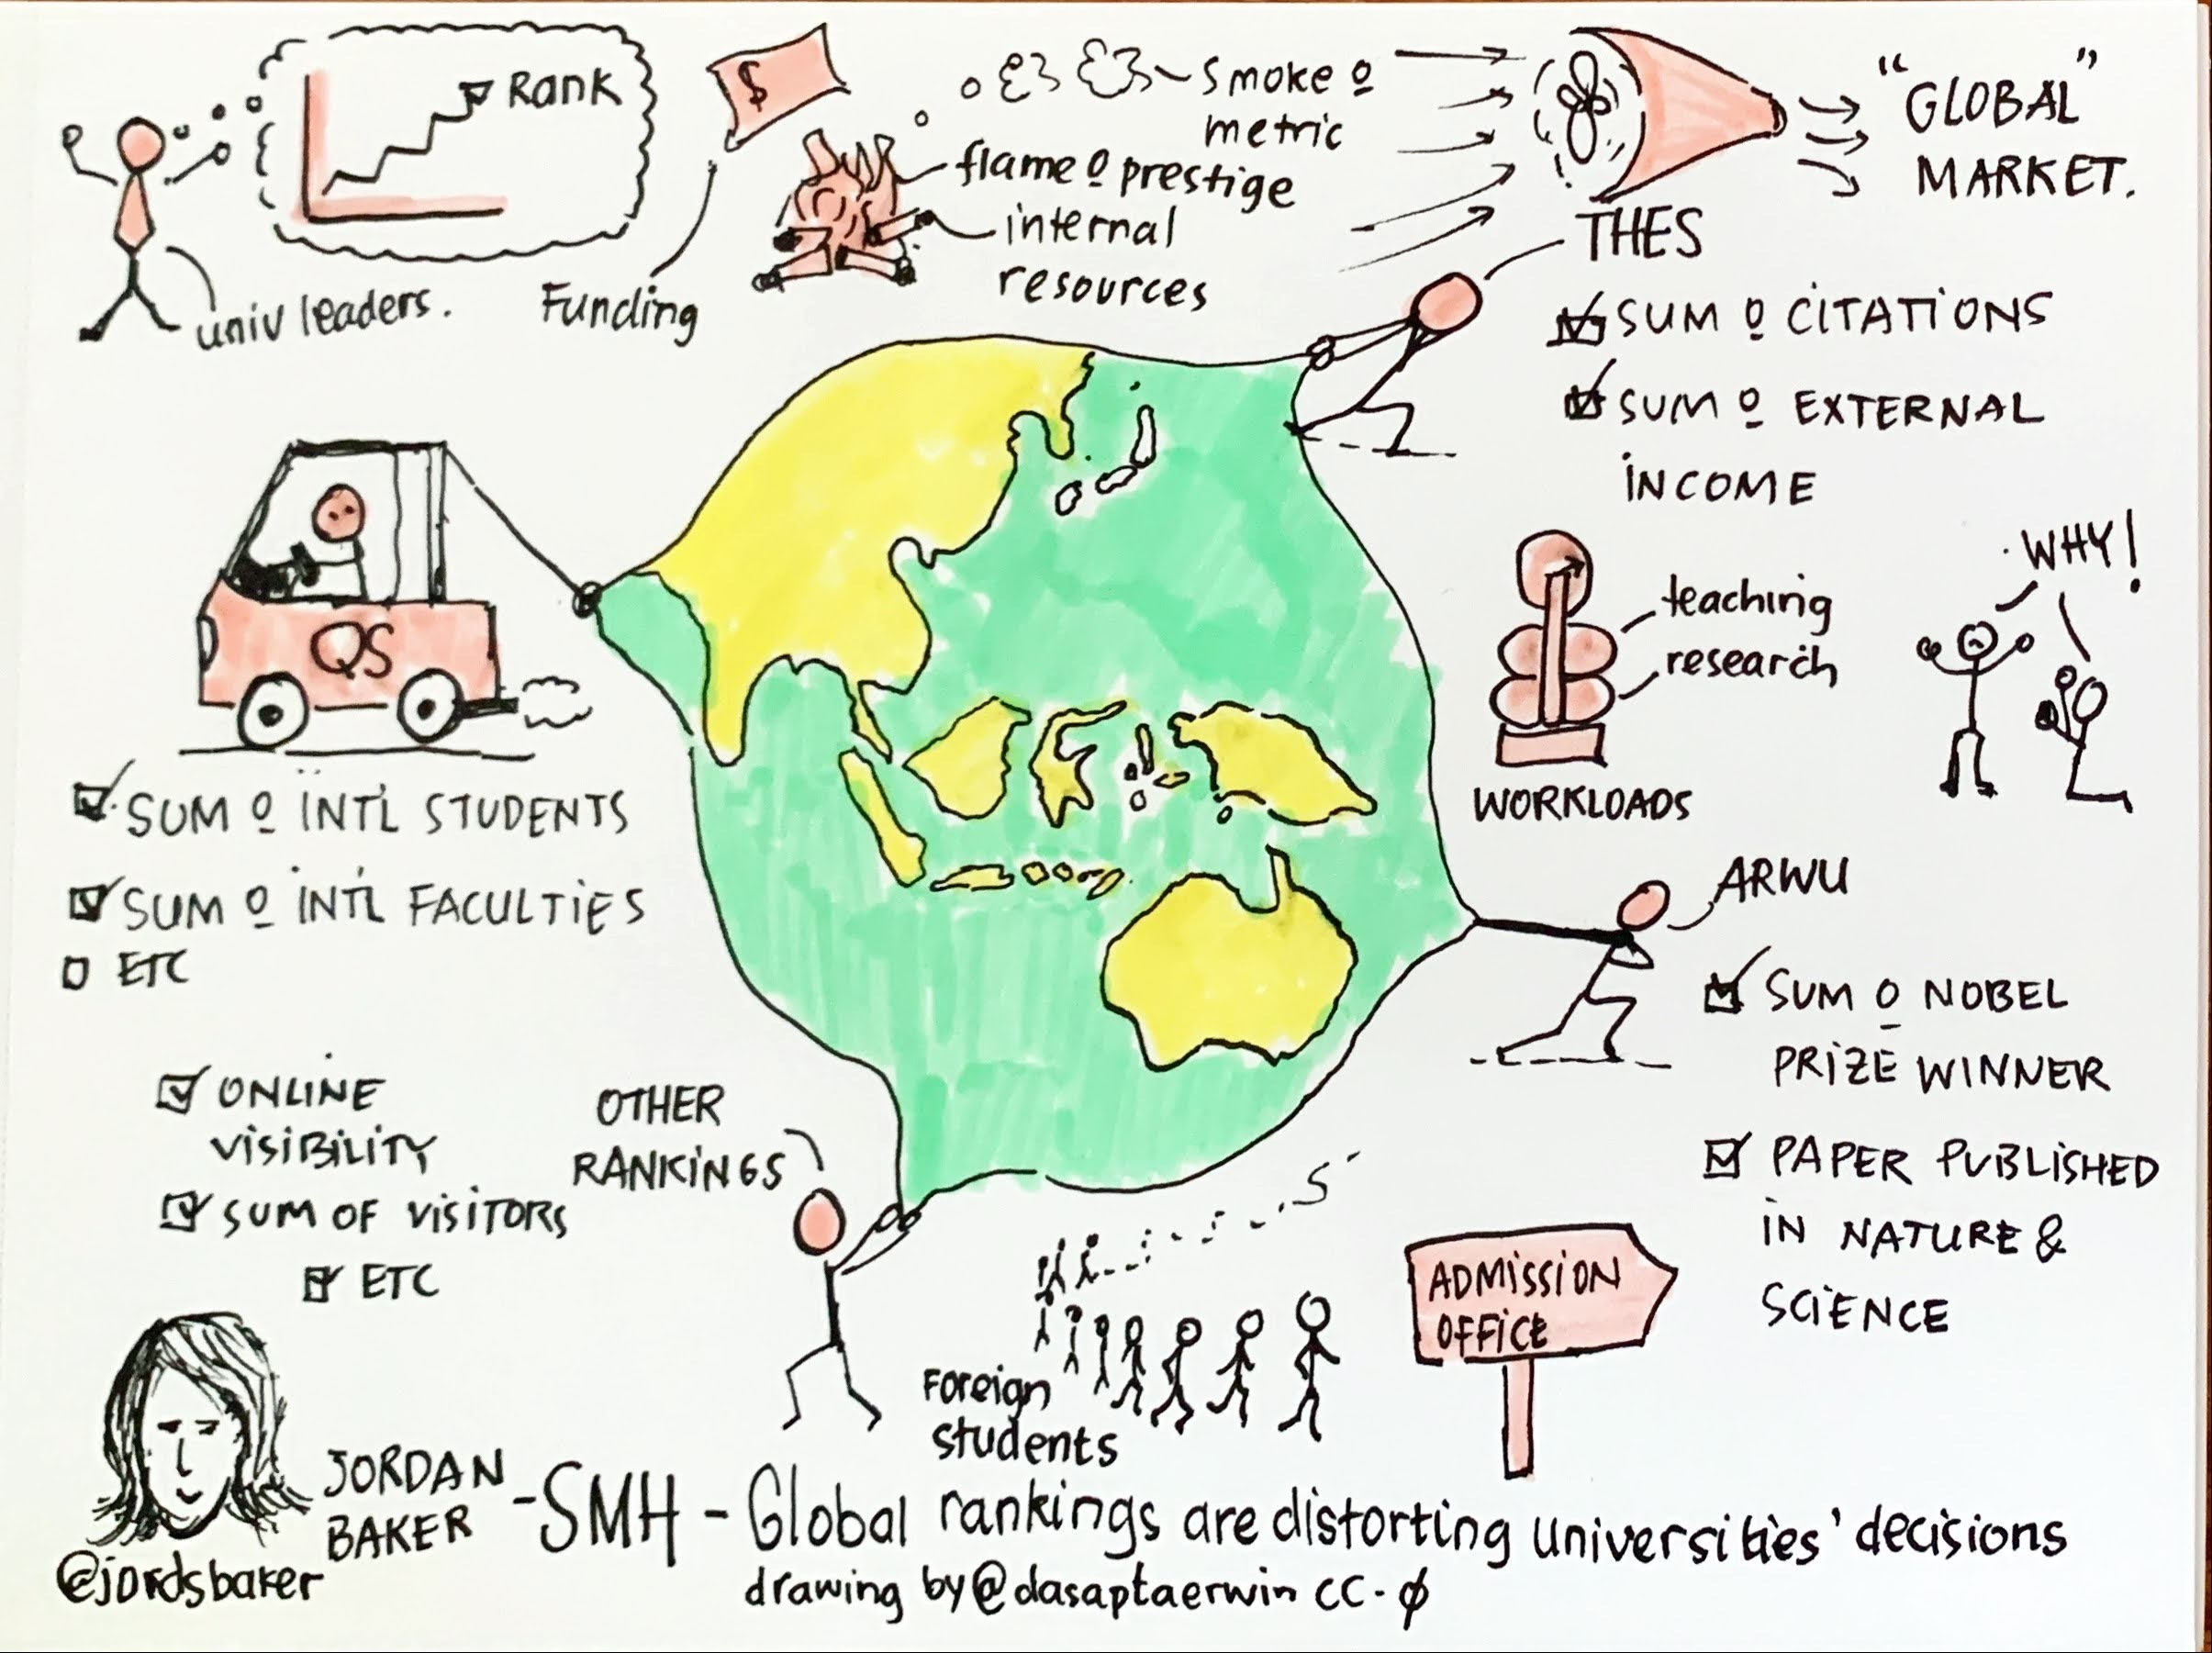 Rank
univ leaders.
$
Funding
Smoke o
metric
flame o prestige
internal
resources
"GLOBAL"
MARKET.
THES
SUM o CITATIONS
SUM o EXTERNAL
INCOME
QS
SUM o INT'L STUDENTS
SUM o INTL FACULTIES
ETC
WHY!
teaching
research
WORKLOADS
ARWU
SUM o NOBEL
PRIZE WINNER
PAPER PUBLISHED
IN NATURE &
SCIENCE
ONLINE
VISIBILITY
SUM OF VISITORS
ETC
OTHER
RANKINGS
Foreign
students
ADMISSION
OFFICE
JORDAN
BAKER
@jordsbaker
-SMH - Global rankings are distorting universities' decisions
drawing by @dasaptaerwin CC-∅